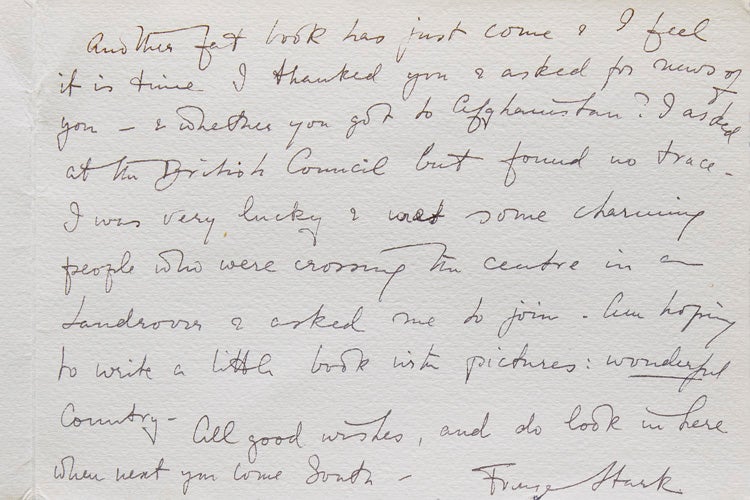 Another fat book has just come & I feel
it is time I thanked you & asked for news of
you — & whether you got to Afghanistan? I asked
at the British Council but found no trace —
I was very lucky & met some charming
people who were crossing the centre in a
Landrover & asked me to join. Am hoping
to write a little book with pictures: wonderful
Country — All good wishes, and do look in here
when next you come South — Freya Stark